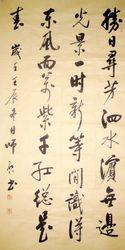 勝日尋芳泗水濱無邊
光景一時新等閒識得
東風面萬紫千紅總是
春
歲壬辰春日
書